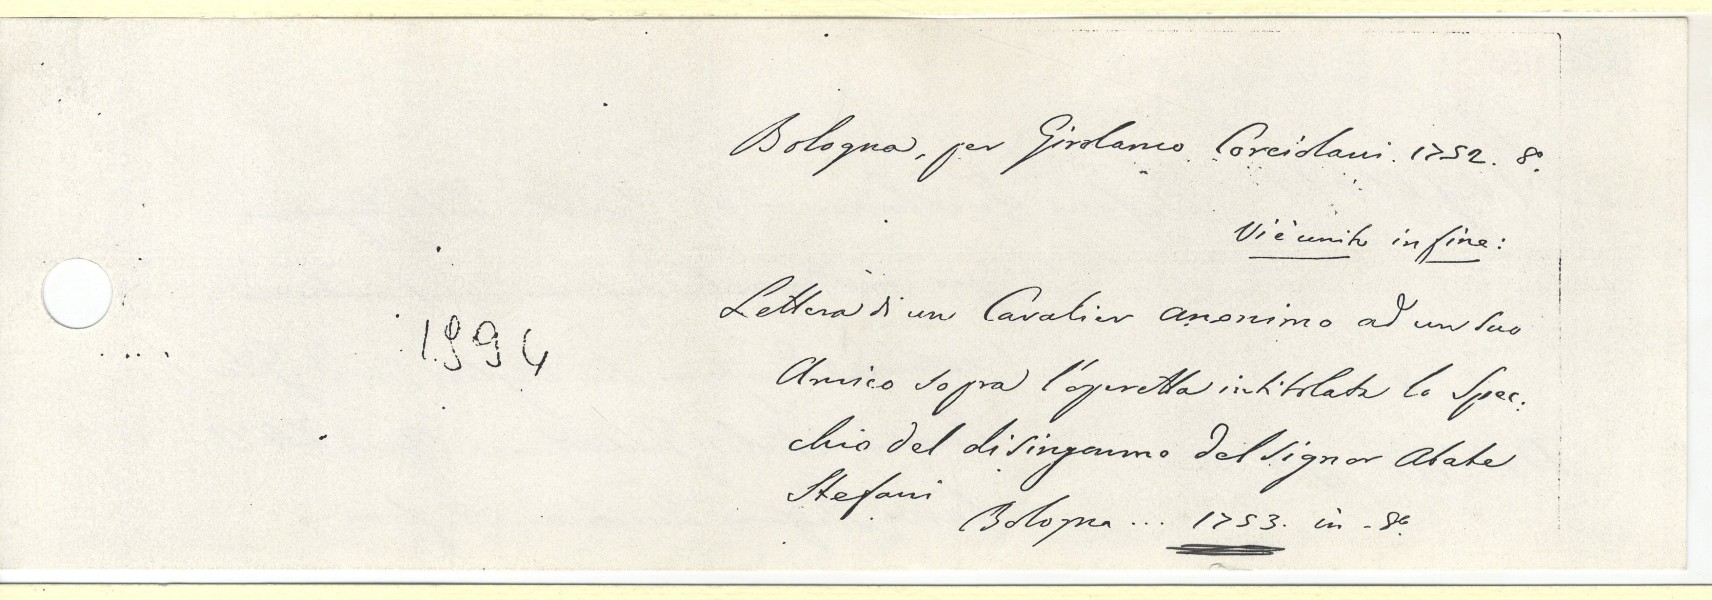 Bologna, per Girolamo Corciolani. 1752. 8º.
Vi è unito in fine:
1994
Lettera di un Cavalier anonimo ad un suo
Amico sopra l'operetta intitolata lo Spec:
chio del disinganno del Signor Abate
Stefani
Bologna ... 1753. in-8º.